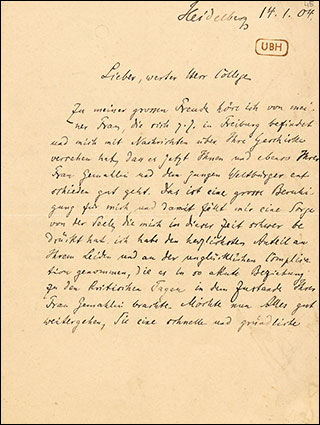 45
Heidelberg 14.1.04.
UBH
Lieber, werter Herr College
Zu meiner grossen Freude höre ich von mei-
ner Frau, die sich z.Z. in Freiburg befindet
und mich mit Nachrichten über Ihre Geschicke
versehen hat, dass es jetzt Ihnen und ebenso Ihrer
Frau Gemahlin und dem jungen Weltbürger ent
schieden gut geht. Das ist eine grosse Beruhi-
gung für mich und damit fällt mir eine Sorge
von der Seele, die mich in dieser Zeit schwer be
drückt hat. ich habe den herzlichsten Anteil an
Ihrem Leiden und an der unglücklichen Complica
tion genommen, die es in so akute Beziehung
zu den kritischen Tagen in dem Zustande Ihrer
Frau Gemahlin brachte. Möchte nun Alles gut
weitergehen, Sie eine schnelle und gründliche